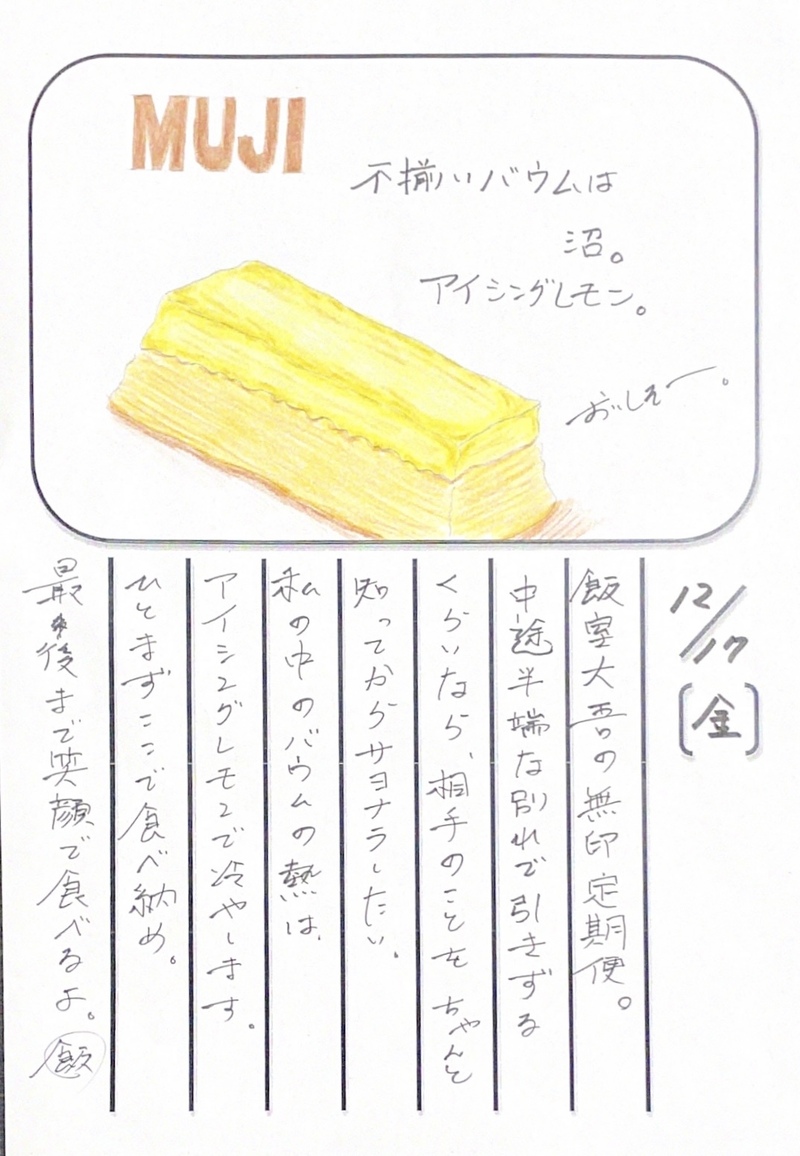 MUJI
不揃いバウムは
沼。
アイシングレモン。
おいしそー。
12/17
[金]
飯室大吾の無印定期便。
中途半端な別れで引きずる
くらいなら、相手のことをちゃんと
知ってからサヨナラしたい。
私の中のバウムの熱は、
アイシングレモンで冷やします。
ひとまずここで食べ納め。
最後まで笑顔で食べるよ。
飯